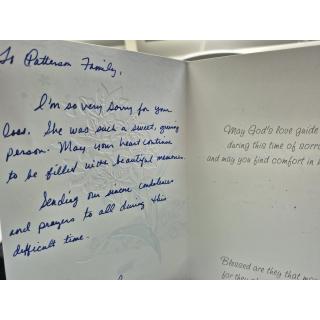 To Patterson Family,
I'm so very sorry for your
loss. She was such a sweet, giving
person. May your heart continue
to be filled with beautiful memories.
Sending our sincere condolences
and prayers to all during this
difficult time.
May God's love guide
during this time of sorro
and may you find comfort in
Blessed are they that mo
for they